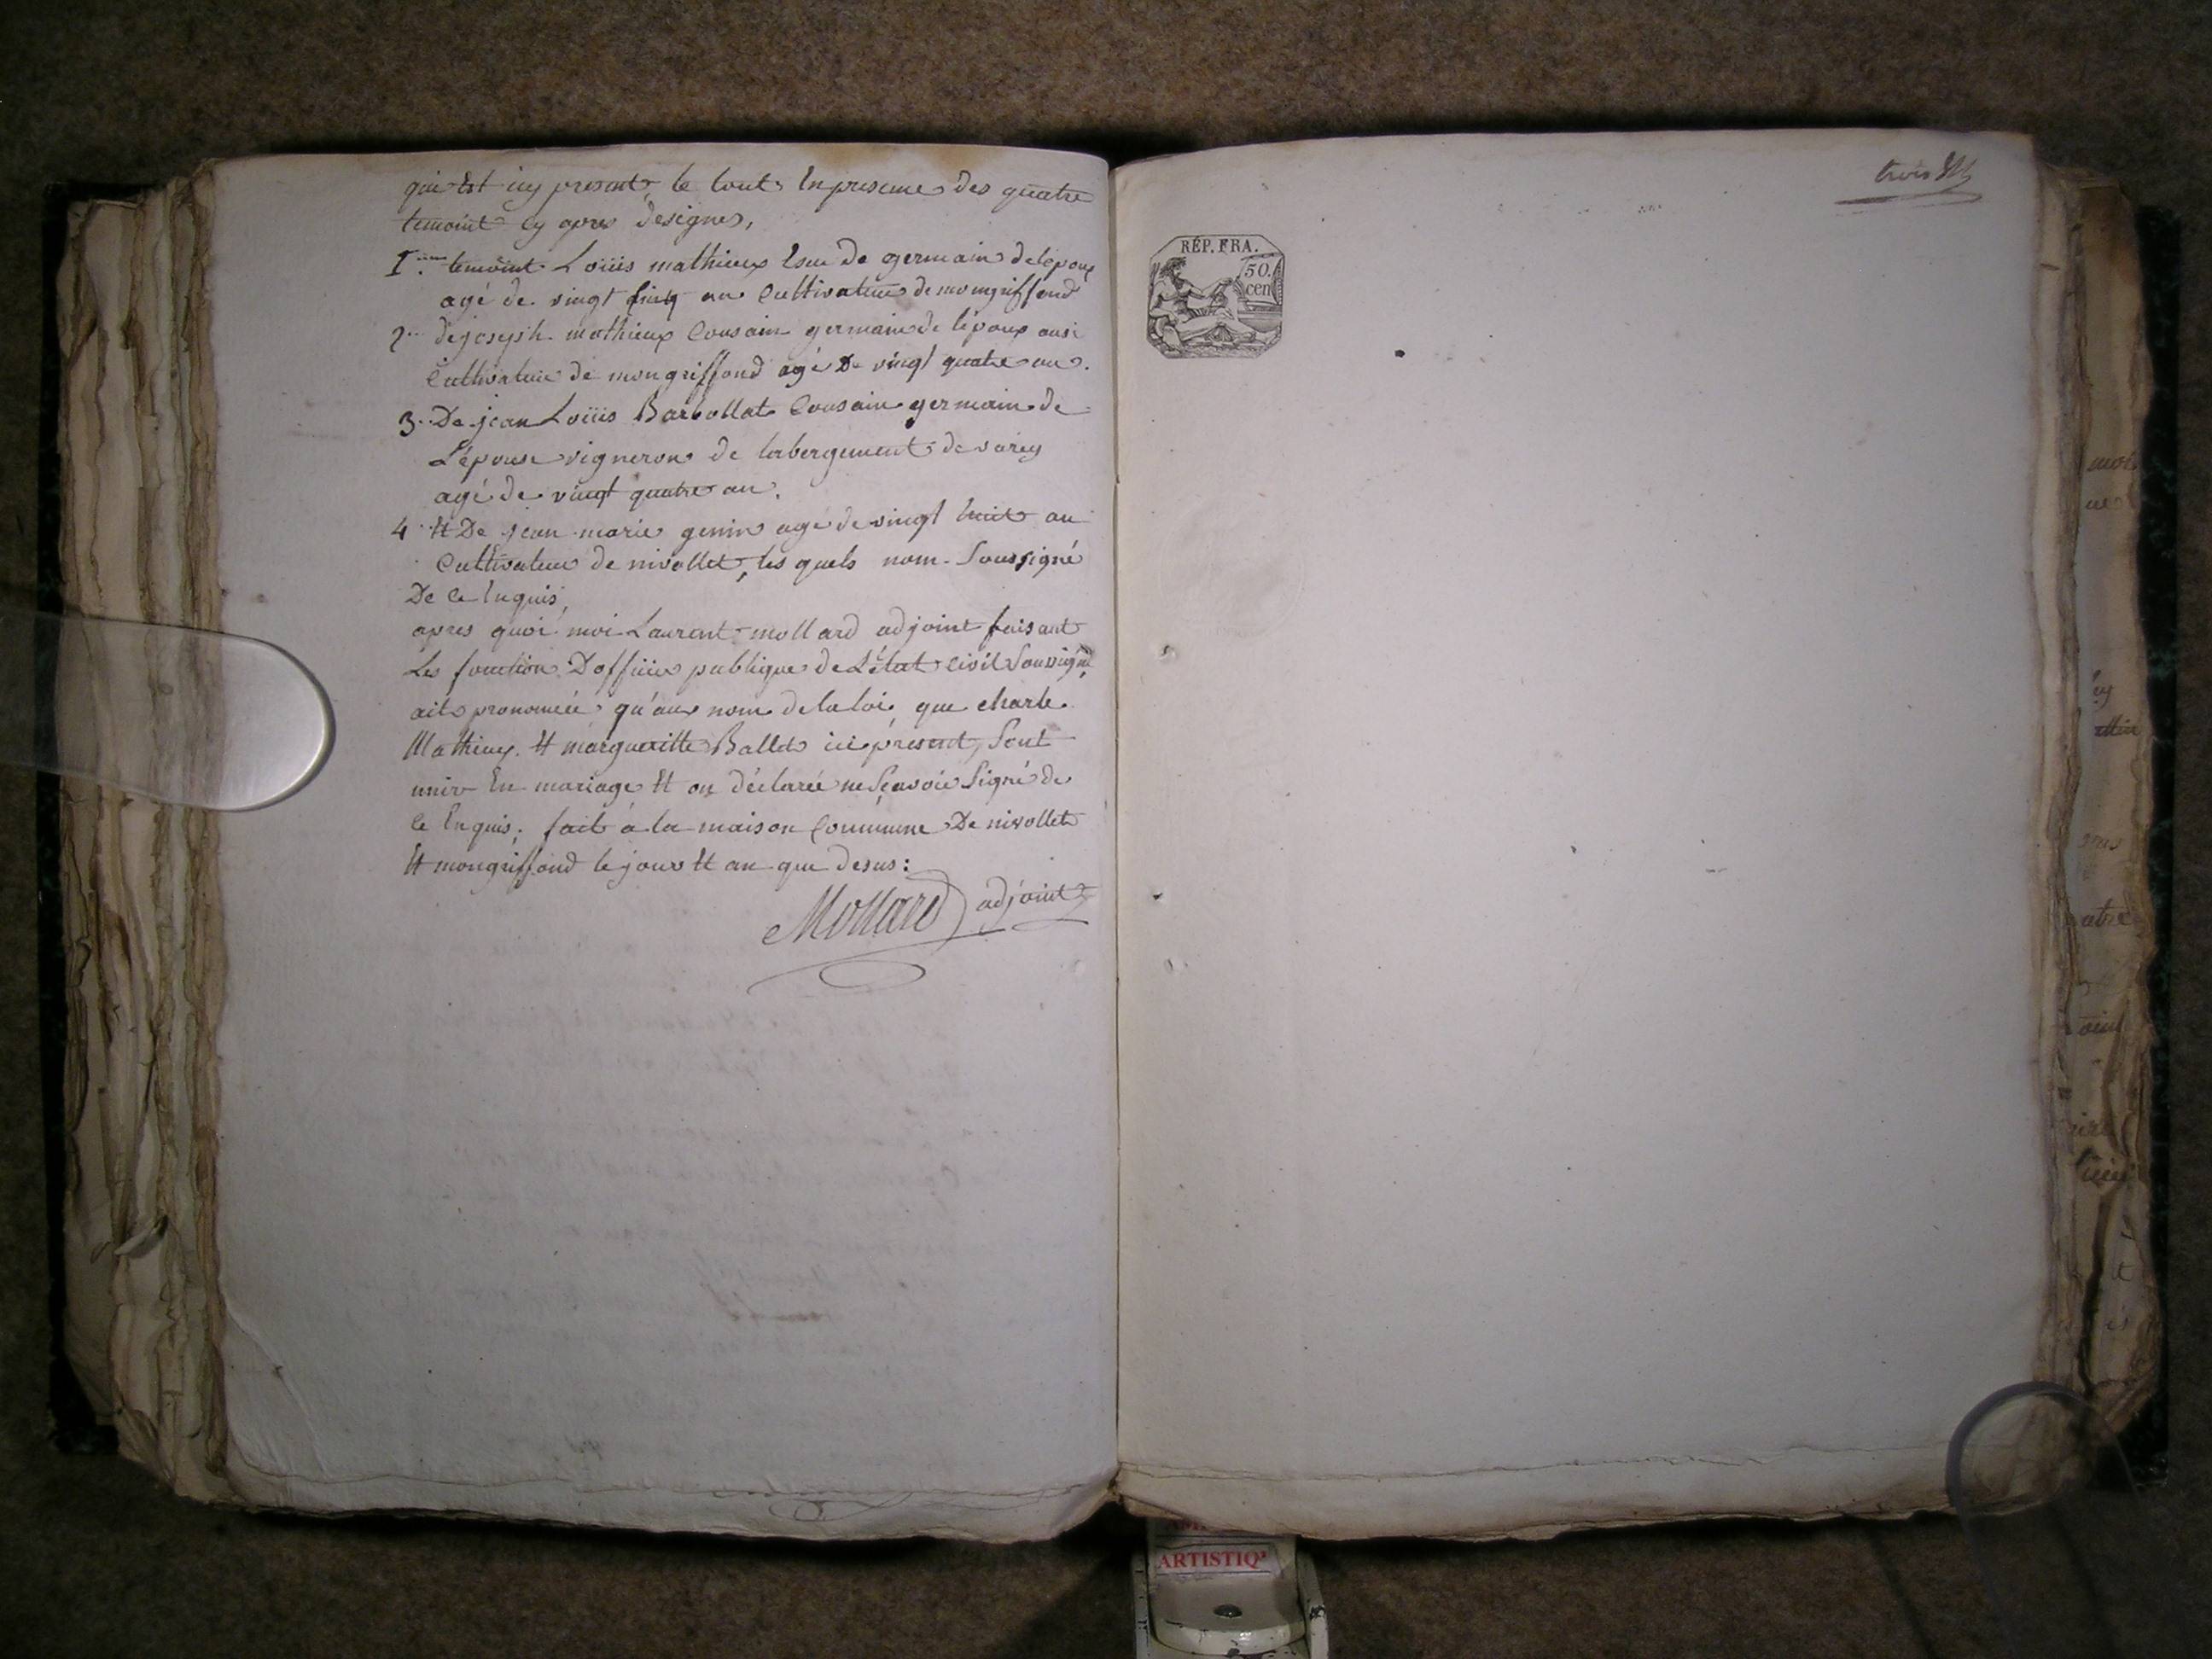 qui Est icy present, le tout En presence des quatre
temoint cy apres designes,
1.er temoint Loüis mathieux de germain de lepoux
agé de vingt Cinq an Cultivateur de mongriffond
2.. de joseph mathieux Cousain germain de lépoux ausi
Cultivateur de mongriffond agé De vingt quatre an.
3.. De jean Loüis Barbollat Cousain germain de
L'épouse vigneron de labergement de varey
agé de vingt quatre an.
4.. Et De jean marie genin agé de vingt huit an
Cultivateur de nivollet, les quels nom Soussigné
De ce Enquis,
apres quoi moi Laurent mollard adjoint faisant
Les fonction D'officier publique de L'état civil Soussigné,
ait prononcée qu'aux nom de la loi, que charle
Mathieux Et margueritte Ballet ici présent, Sont
unir En mariage Et on déclarée ne Sçavoir Signé de
ce Enquis; fait à la maison Commune De nivollet
Et mongriffond le jour Et an que desus:
Mollard adjoint
trois
RÉP. FRA.
50.
cen
ARTISTIQ